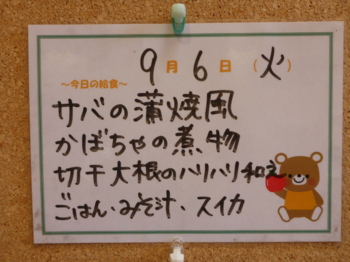 9月6日(火)
～今日の給食～
サバの蒲焼風
かぼちゃの煮物
切干大根のハリハリ和え
ごはん、みそ汁、スイカ